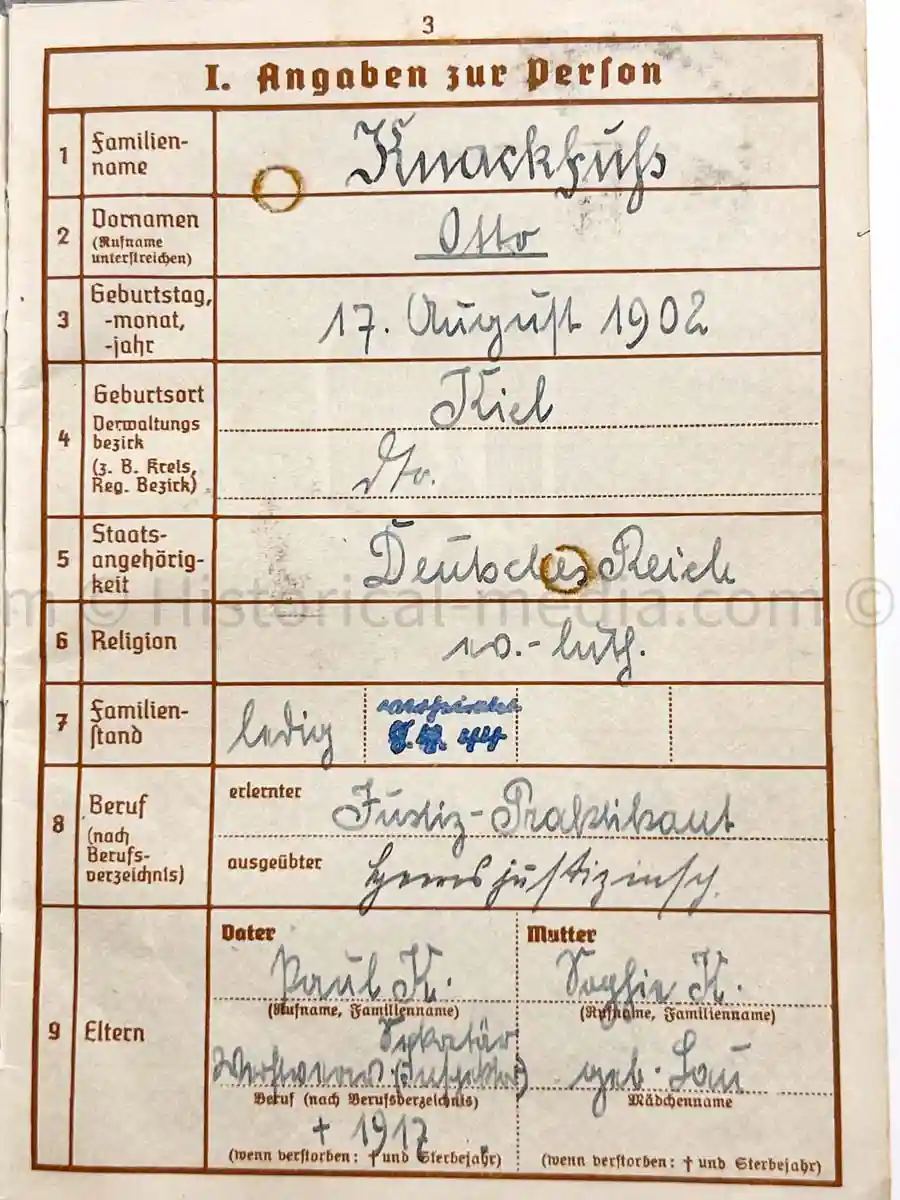 3
I. Angaben zur Person
1 Familien-
name
Knackfuhs
2 Vornamen
(Rufname
unterstreichen)
Otto
3 Geburtstag,
-monat,
-jahr
17. August 1902
4 Geburtsort
Verwaltungs
bezirk
(z. B. Kreis,
Reg. Bezirk)
Kiel
dto.
5 Staats-
angehörig-
keit
Deutsches Reich
© Historical-media.com ©
6 Religion
ev.-luth.
7 Familien-
stand
ledig
verheiratet
8 Beruf
(nach
Berufs-
verzeichnis)
erlernter
Justiz-Praktikant
ausgeübter
9 Eltern
Vater
Paul K.
(Rufname, Familienname)
Sekretär
Beruf (nach Berufsverzeichnis)
† 1917
(wenn verstorben: † und Sterbejahr)
Mutter
Sophie K.
(Rufname, Familienname)
geb. Lau
Mädchenname
(wenn verstorben: † und Sterbejahr)